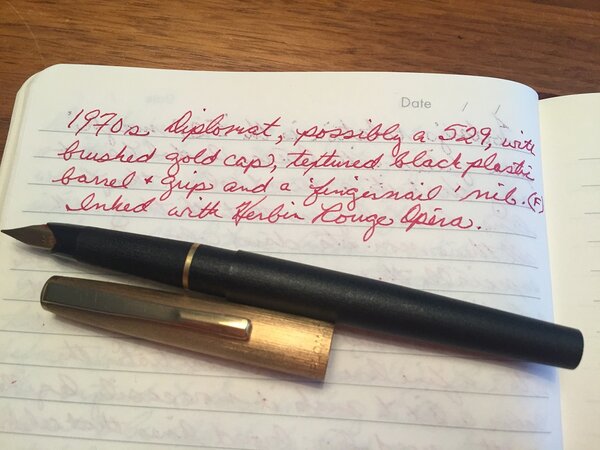 Date / /
1970s Diplomat, possibly a 529, with
brushed gold cap, textured black plastic
barrel + grip and a 'fingernail' nib. (F)
Inked with Herbin Rouge Opéra.